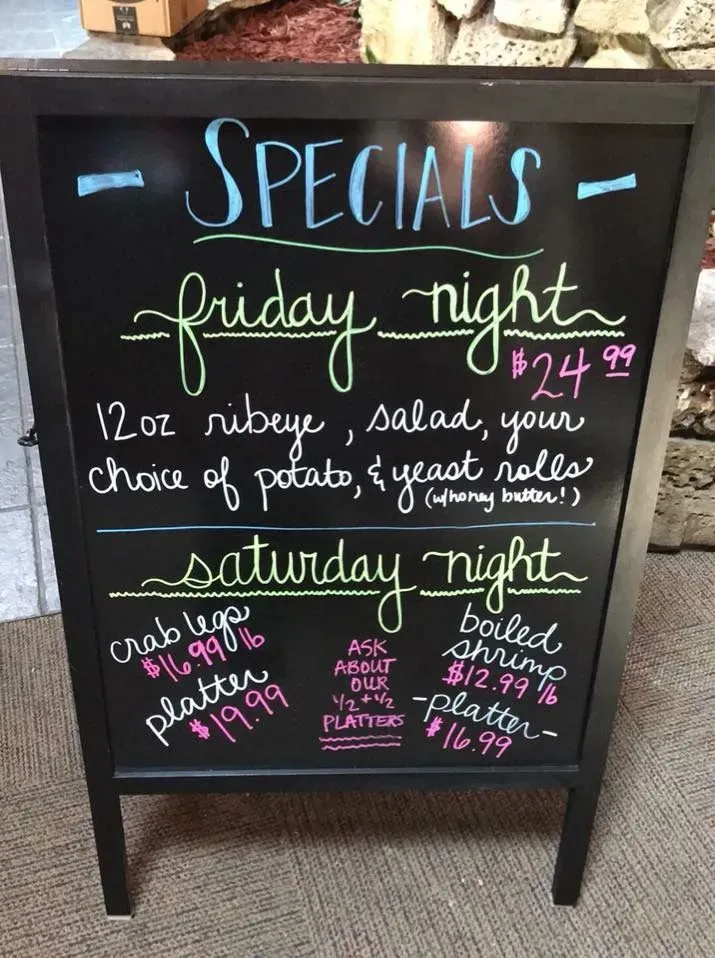 - SPECIALS -
friday night
$24.99
12oz ribeye, salad, your
choice of potato, & yeast rolls
(w/honey butter!)
saturday night
crab legs
$16.99 lb
platter
$19.99
ASK
ABOUT
OUR
1/2 + 1/2
PLATTERS
boiled
shrimp
$12.99 lb
-platter-
$16.99